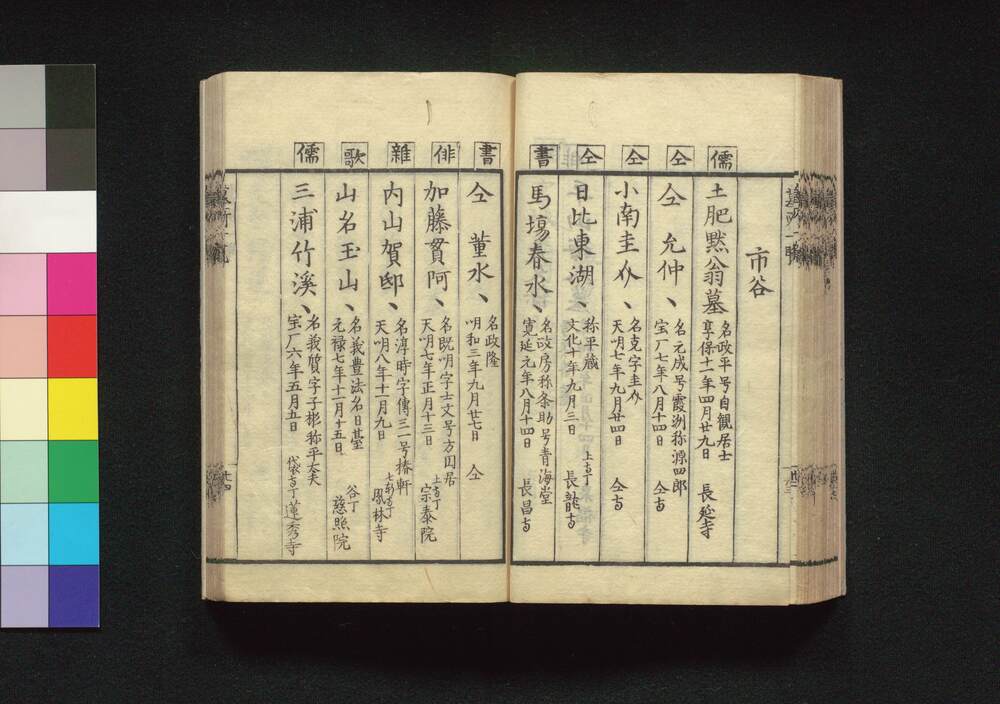 市谷
儒
土肥黙翁墓
名政平号自観居士
享保十一年四月廿九日
長延寺
仝
仝 允仲、
名元成号霞洲称源四郎
宝厂七年八月十四日
仝寺
仝
小南圭㕚、
名克字圭㕚
天明七年九月廿四日
仝寺
仝
日比東湖、
称平蔵
文化十年九月三日
上寺丁
長龍寺
書
馬場春水、
名政房称条助号青海堂
寛延元年八月十四日
長昌寺
書
仝 董水、
名政隆
明和三年九月廿七日
仝
俳
加藤貧阿、
名既明字士文号方円居
天明七年正月十三日
上寺丁
宗泰院
雑
内山賀邸、
名淳時字傳三一号椿軒
天明八年十一月九日
七軒寺丁
鳳林寺
歌
山名玉山、
名義豊法名日䑓
元禄七年十一月十五日
谷丁
慈照院
儒
三浦竹溪、
名義質字子彬称平太夫
宝厂六年五月五日
代衣寺丁
蓮秀寺
廿四